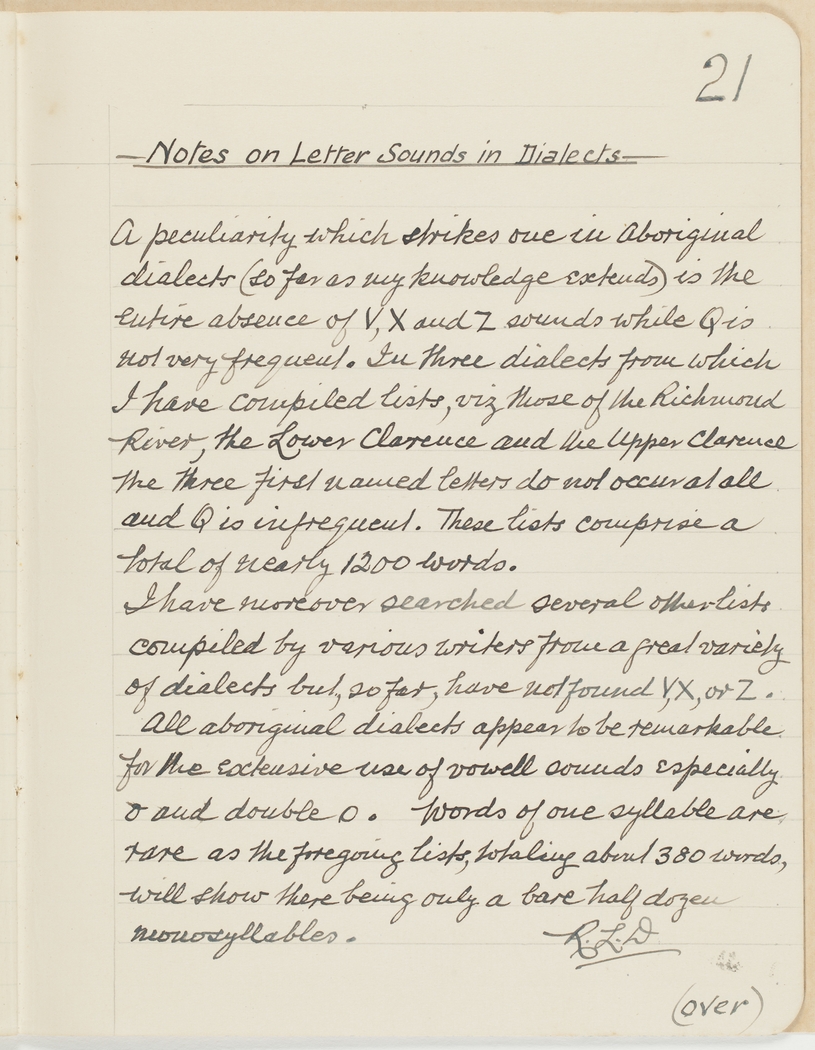 21
— Notes on Letter Sounds in Dialects —
A peculiarity which strikes one in Aboriginal
dialects (so far as my knowledge extends) is the
entire absence of V, X and Z sounds while Q is
not very frequent. In three dialects from which
I have compiled lists, viz those of the Richmond
River, the Lower Clarence and the Upper Clarence
the three first named letters do not occur at all
and Q is infrequent. These lists comprise a
total of nearly 1200 words.
I have moreover searched several other lists
compiled by various writers from a great variety
of dialects but, so far, have not found V, X, or Z.
All aboriginal dialects appear to be remarkable
for the extensive use of vowell sounds especially
o and double o. Words of one syllable are
rare as the foregoing lists, totaling about 380 words,
will show there being only a bare half dozen
monosyllables.
R.L.D
(over)